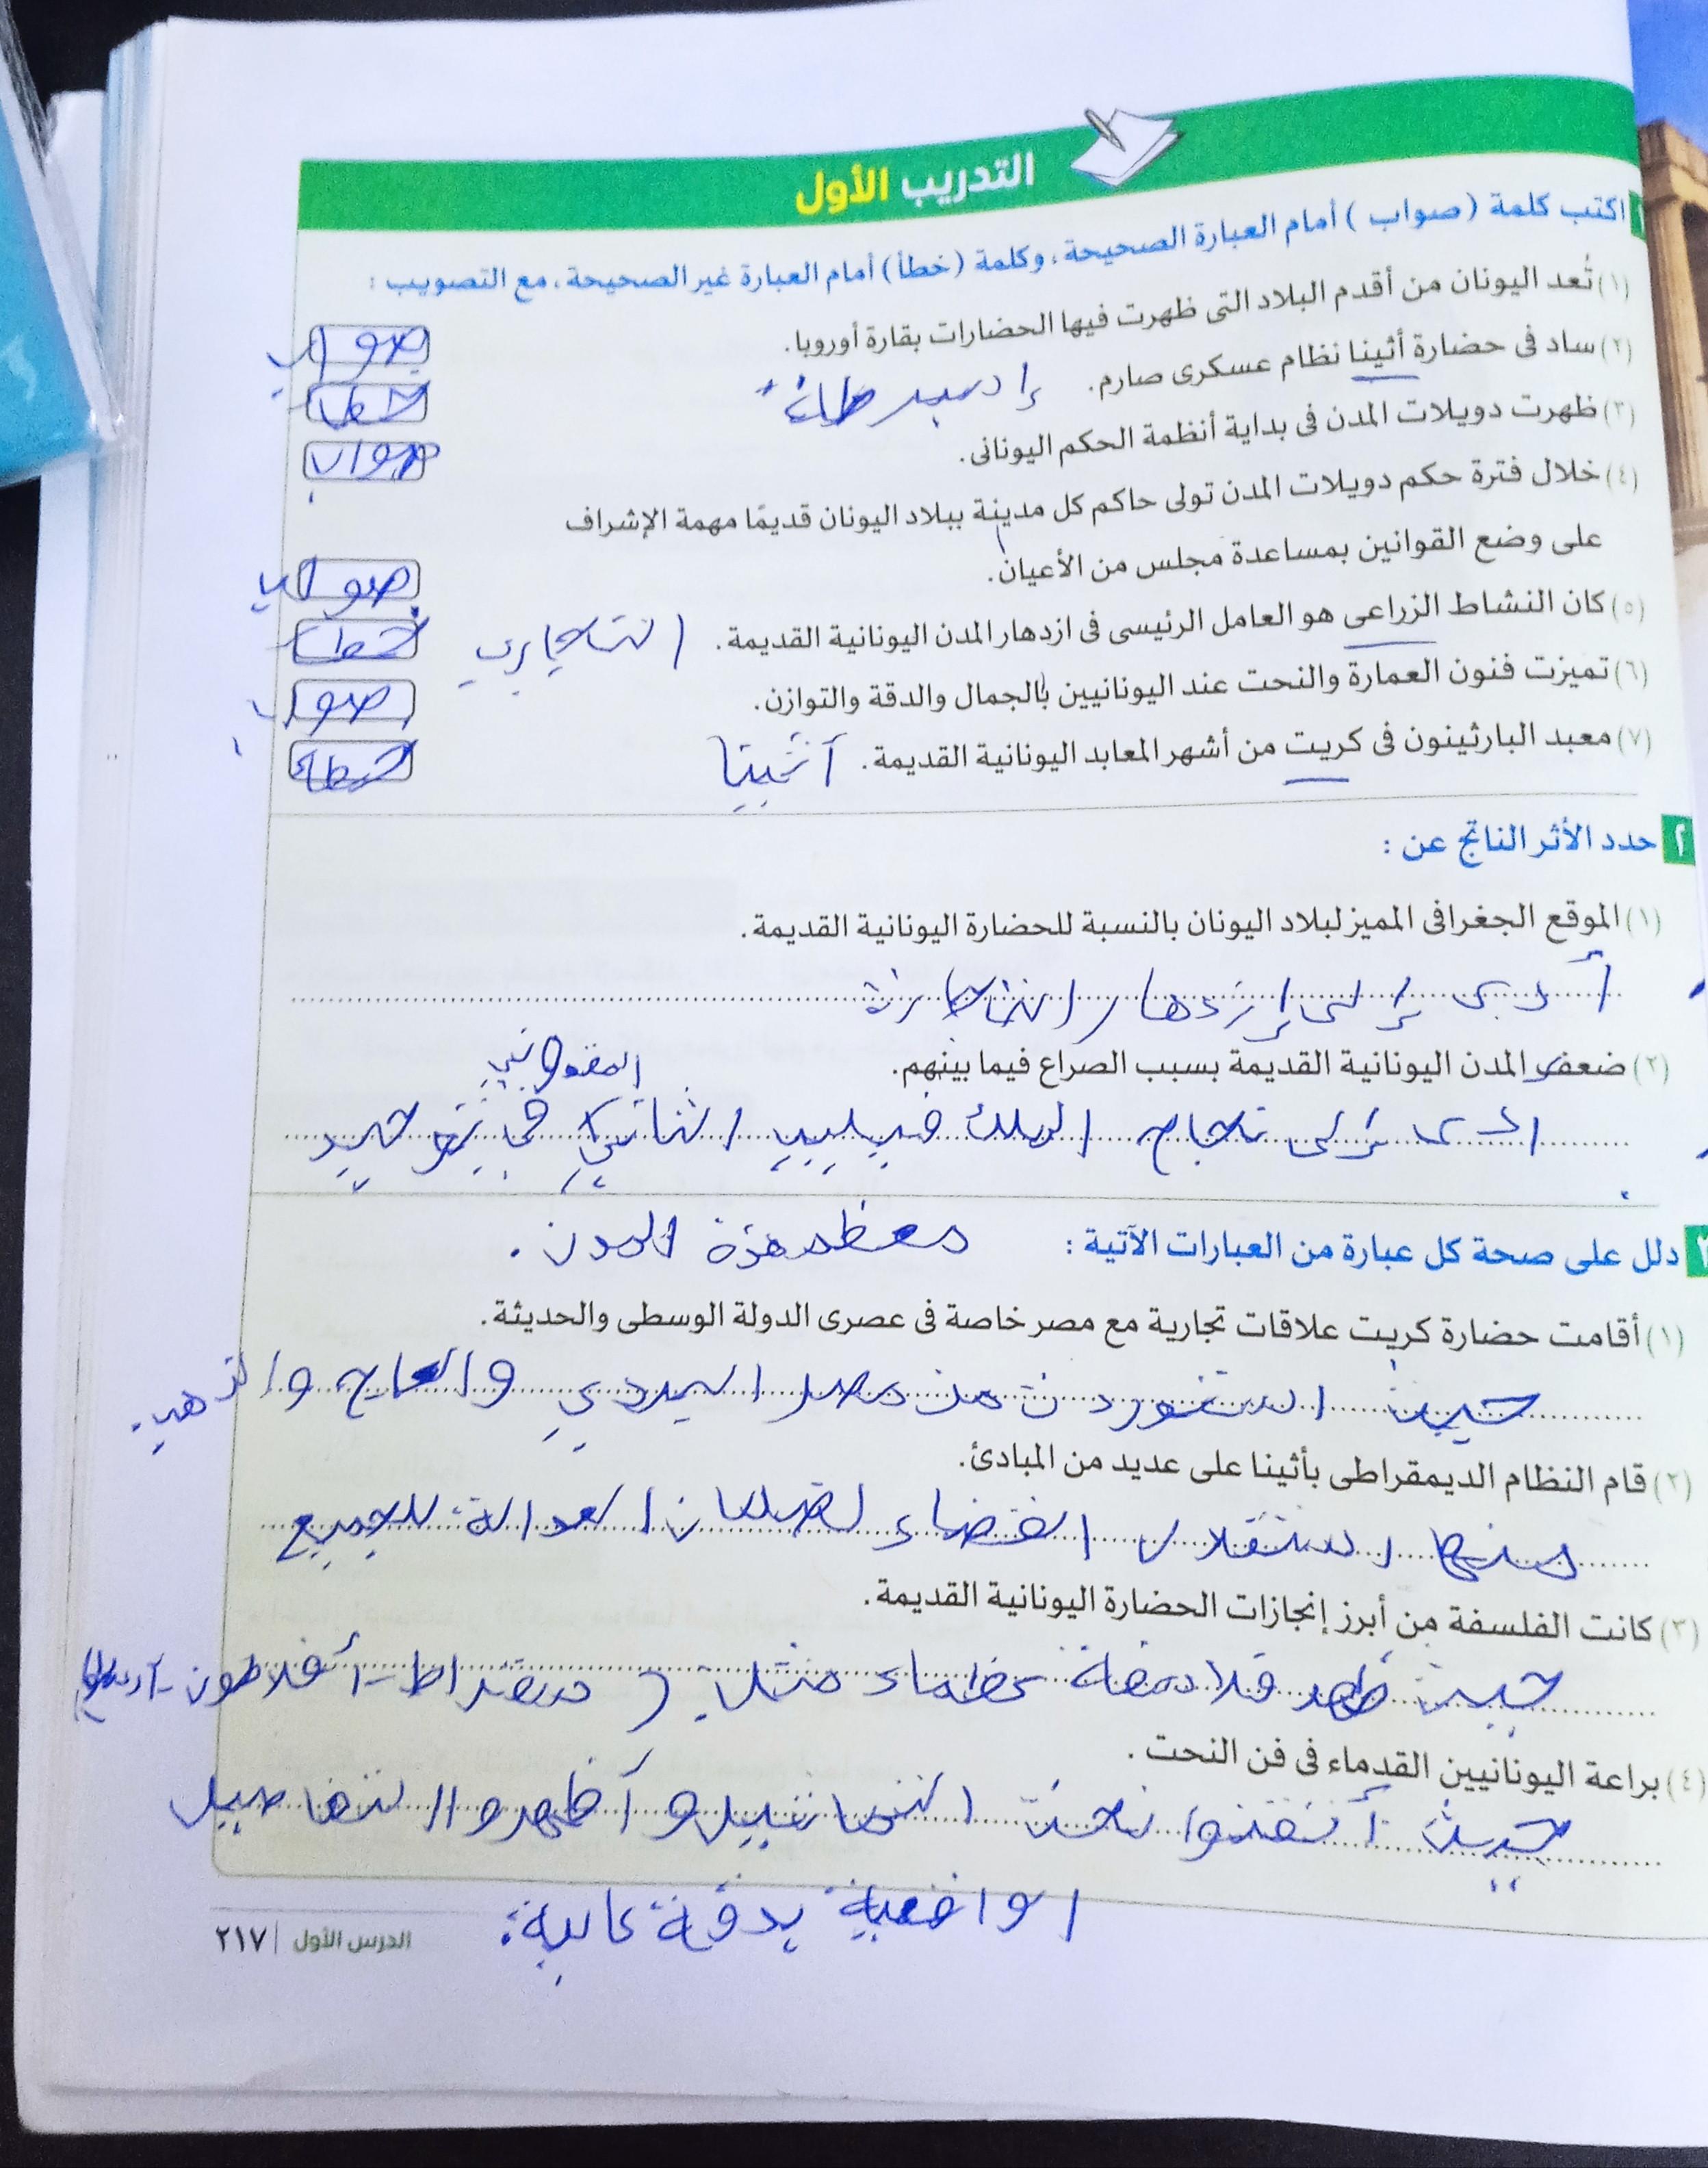 التدريب الأول
١ اكتب كلمة (صواب) أمام العبارة الصحيحة، وكلمة (خطأ) أمام العبارة غير الصحيحة، مع التصويب :
(١) تُعد اليونان من أقدم البلاد التى ظهرت فيها الحضارات بقارة أوروبا. صواب
(٢) ساد فى حضارة أثينا نظام عسكرى صارم. إسبرطة خطأ
(٣) ظهرت دويلات المدن فى بداية أنظمة الحكم اليونانى. صواب
(٤) خلال فترة حكم دويلات المدن تولى حاكم كل مدينة ببلاد اليونان قديمًا مهمة الإشراف
على وضع القوانين بمساعدة مجلس من الأعيان. صواب
(٥) كان النشاط الزراعى هو العامل الرئيسى فى ازدهار المدن اليونانية القديمة. التجاري خطأ
(٦) تميزت فنون العمارة والنحت عند اليونانيين بالجمال والدقة والتوازن. صواب
(٧) معبد البارثينون فى كريت من أشهر المعابد اليونانية القديمة. أثينا خطأ
٢ حدد الأثر الناتج عن :
(١) الموقع الجغرافى المميز لبلاد اليونان بالنسبة للحضارة اليونانية القديمة.
أدى إلى إزدهار التجارة
(٢) ضعف المدن اليونانية القديمة بسبب الصراع فيما بينهم.
المقدوني
ادى إلى نجاح الملك فيليب الثاني في توحيد
معظم هذة المدن.
٣ دلل على صحة كل عبارة من العبارات الآتية :
(١) أقامت حضارة كريت علاقات تجارية مع مصر خاصة فى عصرى الدولة الوسطى والحديثة.
حيث استوردت من مصر البردي والعاج والذهب.
(٢) قام النظام الديمقراطى بأثينا على عديد من المبادئ.
منها استقلال القضاء لضمان العدالة للجميع
(٣) كانت الفلسفة من أبرز إنجازات الحضارة اليونانية القديمة.
حيث ظهر فلاسفة عظماء مثل ( سقراط - أفلاطون - ارسطو
(٤) براعة اليونانيين القدماء فى فن النحت.
حيث أتقنوا نحت التماثيل و أظهروا التفاصيل
الواقعية بدقة عالية.
الدرس الأول | ٢١٧